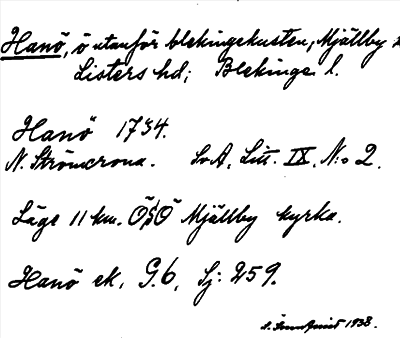 Hanö, ö utanför blekingekusten, Mjällby
Listers hd; Blekinge l.
Hanö 1734.
N. Strömcrona. SvA. Litt. IX. N:o 2.
Läge 11 km. ÖSÖ Mjällby kyrka.
Hanö ek. G.6, Sj: 259.
1938.